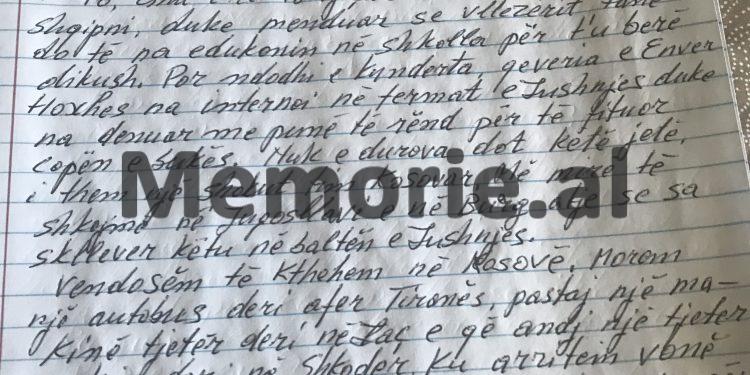 Shqipni, duke menduar se vllezërit tanë
do të na edukonin në shkolla për t'u berë
dikush. Por ndodhi e kundërta, qeveria e Enver
Hoxhës na internoi në fermat e Lushnjes duke
na denuar me punë të rëndë për të fituor
copën e bukës. Nuk e durova dot këtë jetë,
i them një shokut tim Kosovar më mirë të
shkojmë në Jugosllavi e në Burg atje se sa
skllevër këtu në baltën e Lushnjes.
Vendosëm të kthehem në Kosovë. Morëm
një autobus deri afer Tiranës, pastaj një ma-
kinë tjetër deri në Laç e që andj një tjeter
deri në Shkoder, ku arritëm vonë
Memorie.al